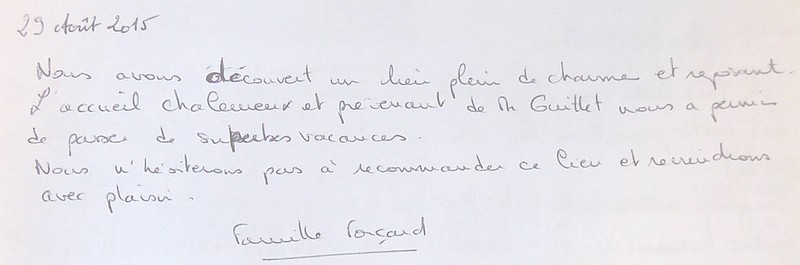 29 Août 2015
Nous avons découvert un lieu plein de charme et reposant.
L'accueil chaleureux et prévenant de Mr Guillet nous a permis
de passer de superbes vacances.
Nous n'hésiterons pas à recommander ce lieu et reviendrons
avec plaisir.
Famille Forçard